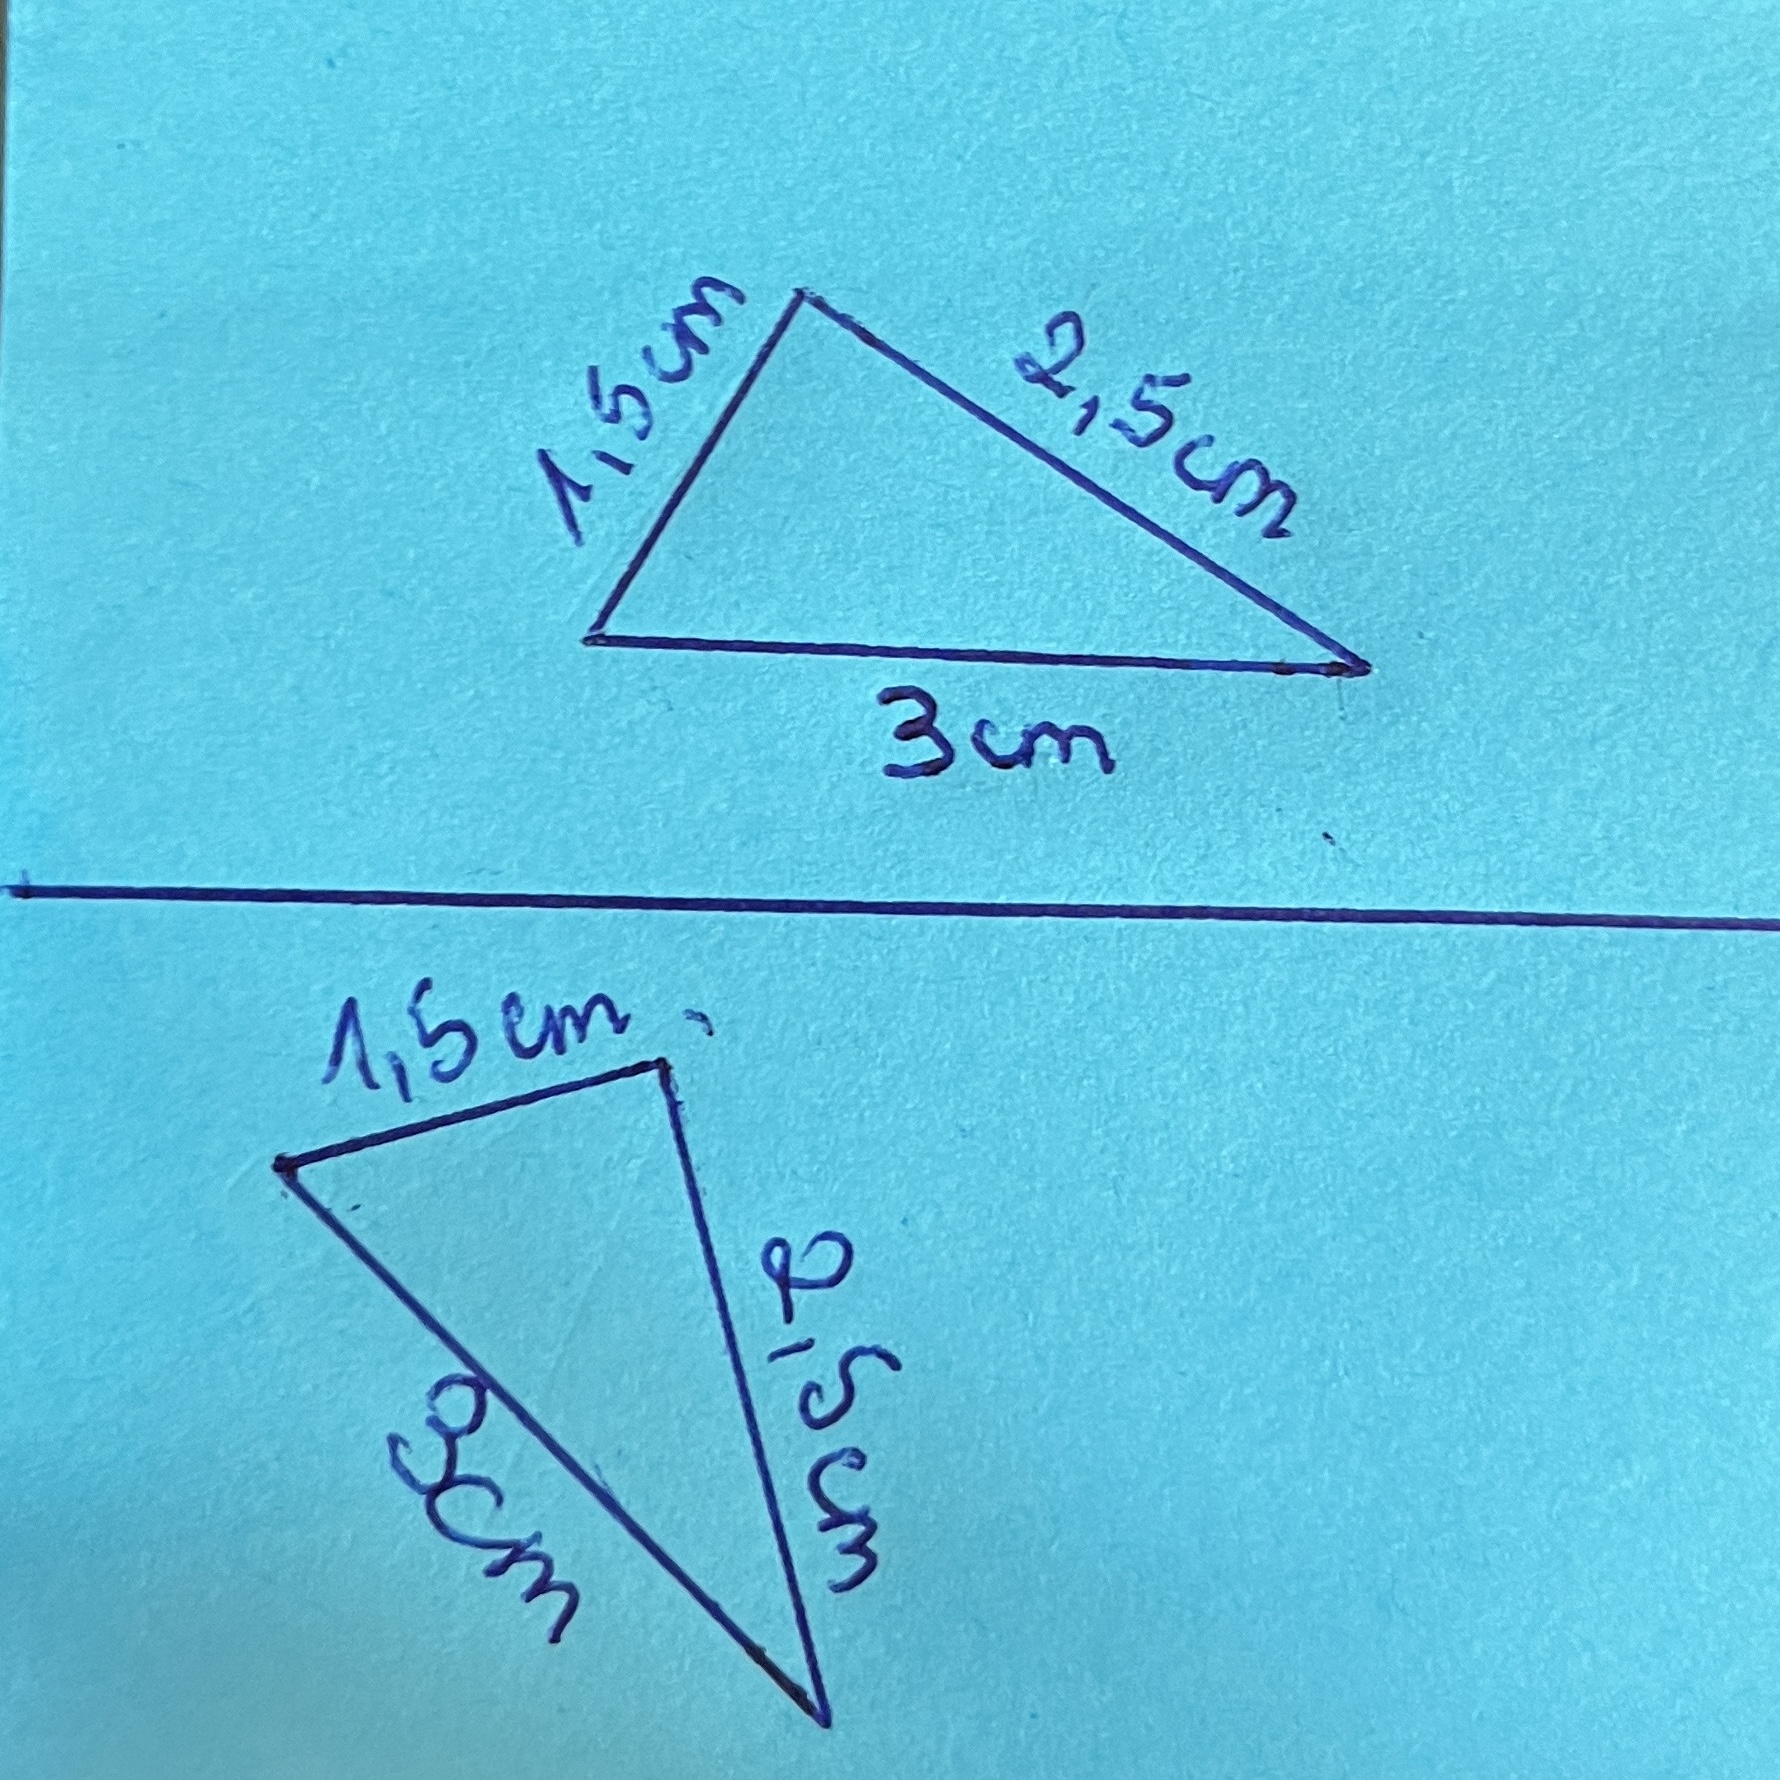 1,5cm
2,5cm
3cm
1,5cm
2,5cm
3cm